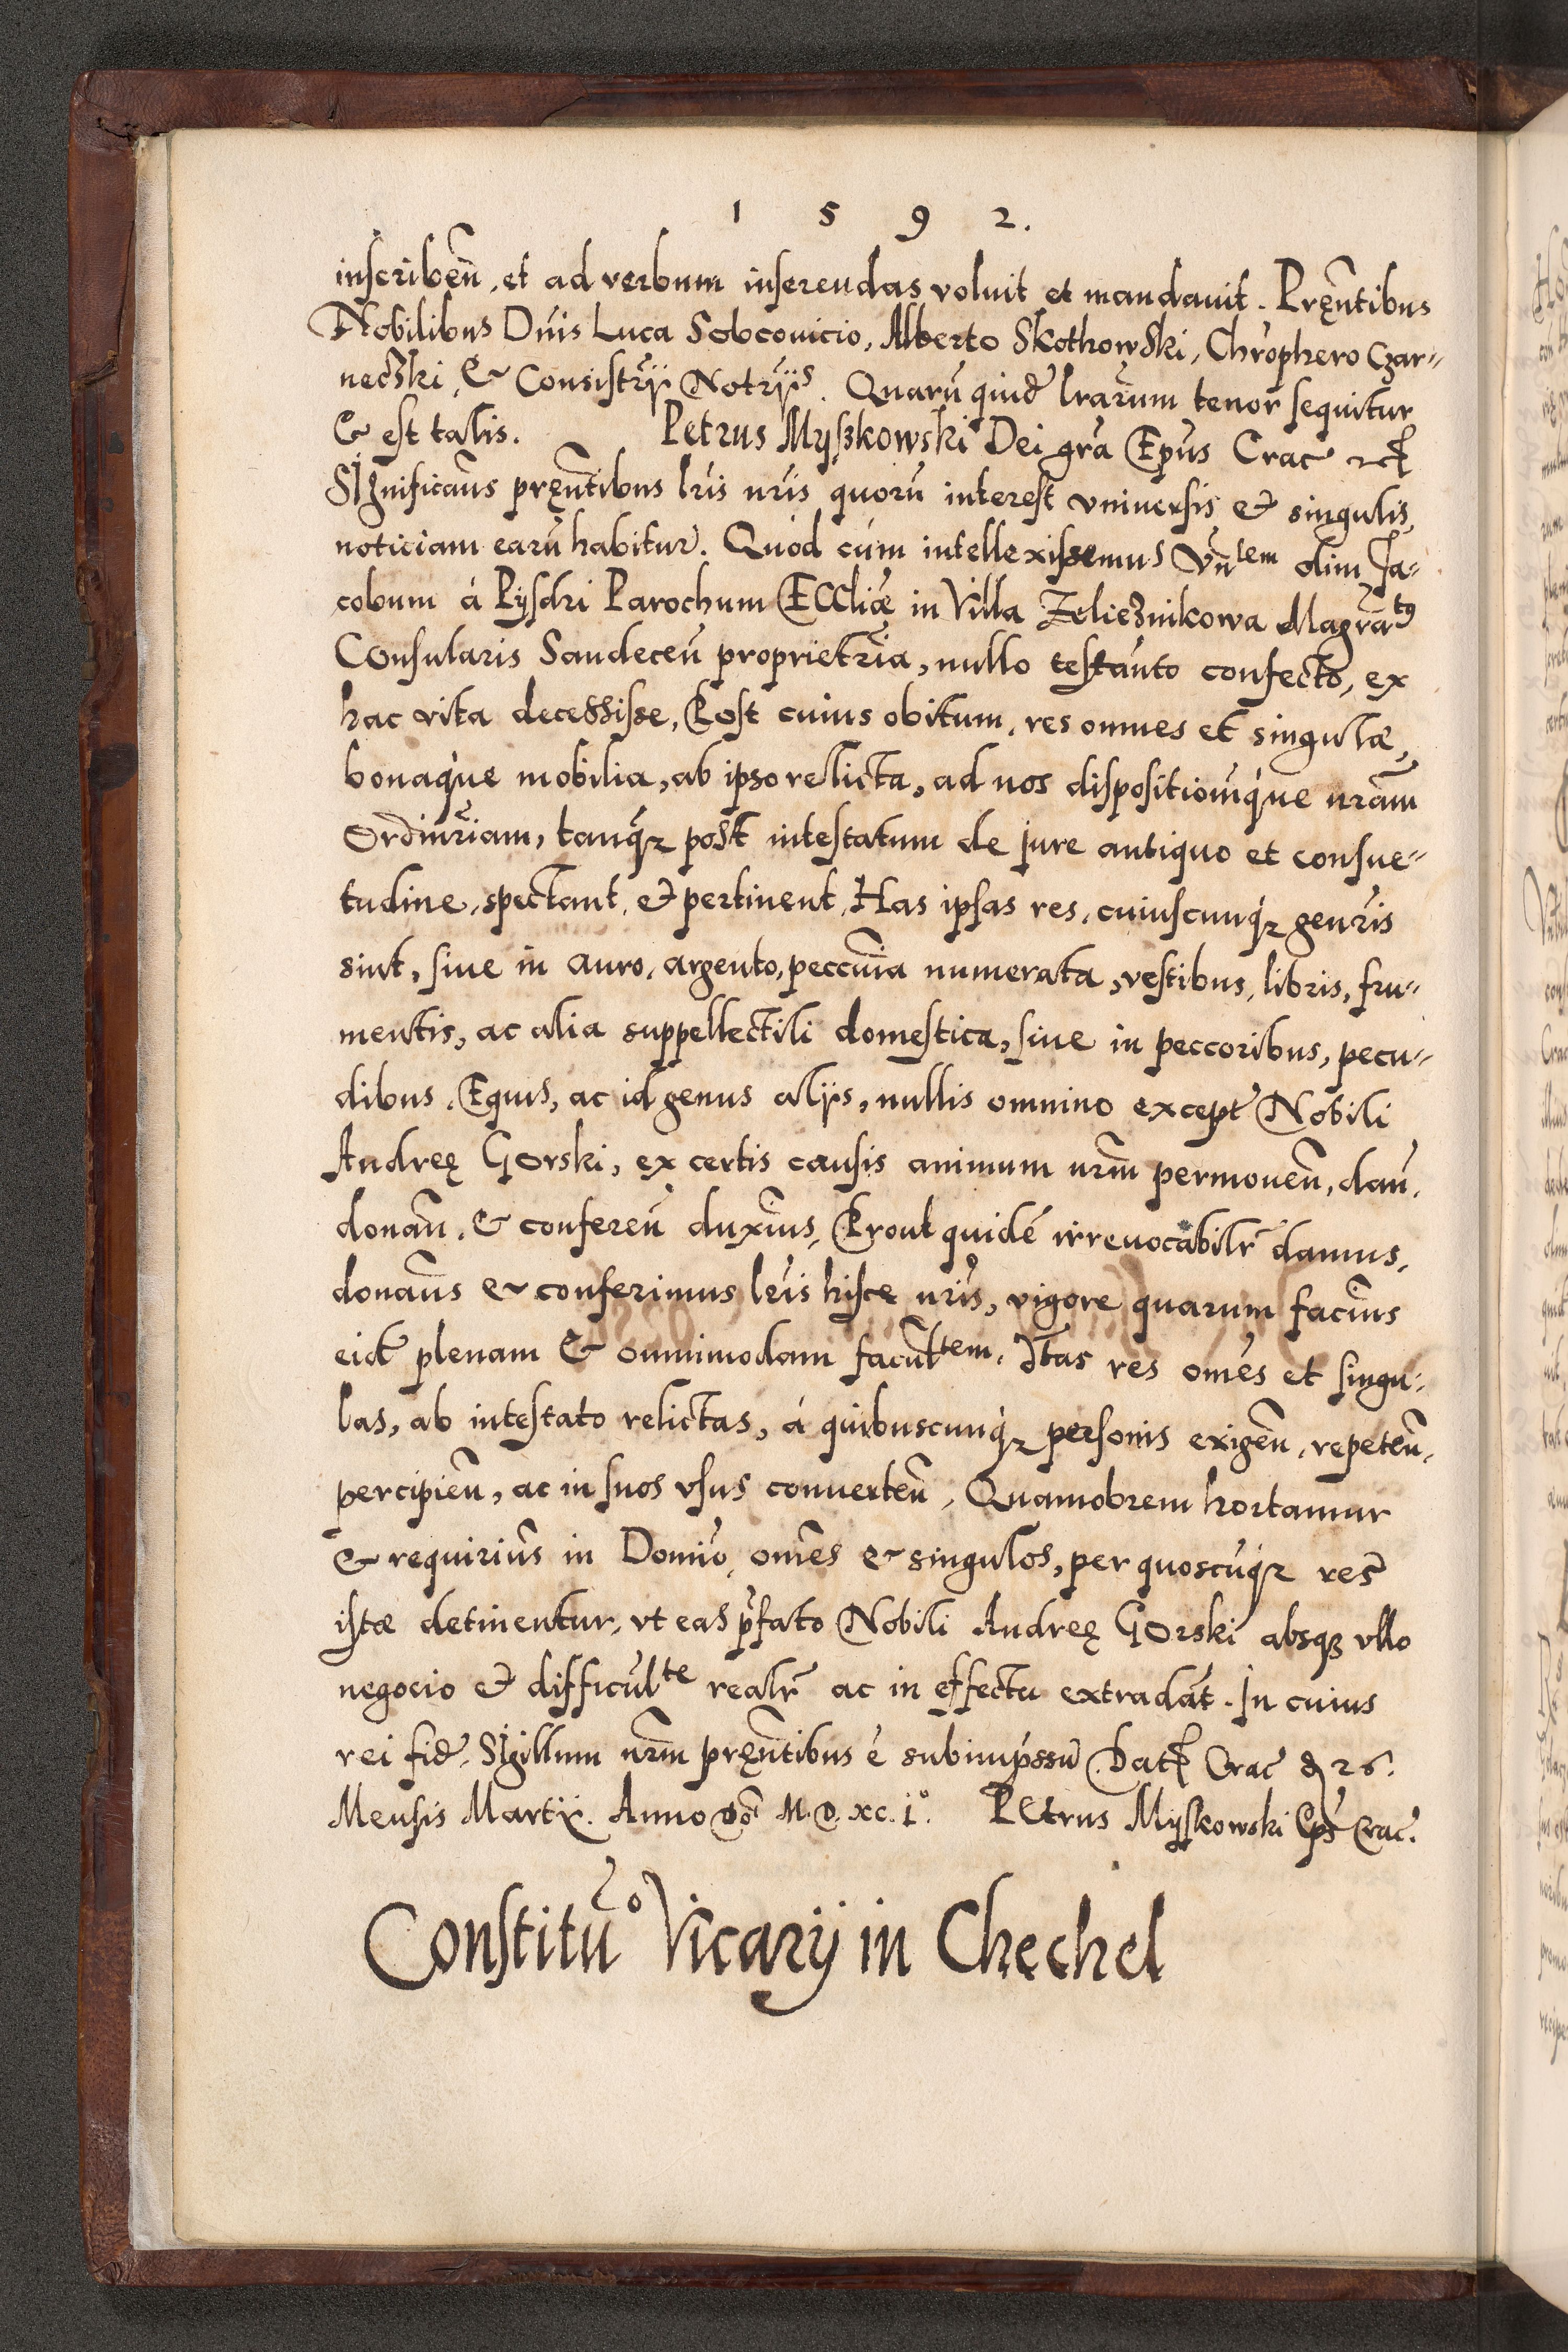 1 5 9 2.
inscribeñ, et ad verbum inserendas voluit et mandauit. Pręñtibus
Nobilibus Dñis Luca Sobcouicio, Alberto Skothowski, Chrõphero Czar-
necski, & Consistrÿ Notrÿs. Quarũ quid̃ lrarum tenor sequitur
& est talis. Petrus Myßkowski Dei grã Epũs Crac̃ etc̃
Significam̃s pręñtibus lr̃is nr̃is quorũ interest vniuersis & singulis,
noticiam earũ habitur̃. Quòd cùm intellexissemus Vñtem olim Ja-
cobum à Pysdri Parochum Ecc̃liæ in Villa Zeliesnikowa Magrãtꝰ
Consularis Sandeceñ proprietr̃ia, nullo testam̃to confecto, ex
hac vita decessisse, Post cuius obitum, res omnes et singulæ,
bonaq́ue mobilia, ab ipso relicta, ad nos dispositionẽq́ue nr̃am
Ordinr̃iam, tanq̃ post intestatum de jure antiquo et consue-
tudine, spectant, & pertinent, Has ipsas res, cuiuscunq́ꝫ gener̃is
sint, siue in auro, argento, peccũnia numerata, vestibus, libris, fru-
mentis, ac alia suppellectili domestica, siue in peccoribus, pecu-
dibus, Equis, ac id genus alÿs, nullis omnino except̃ Nobili
Andreę Gorski, ex certis causis animum nr̃m permoueñ, dañ,
donañ, & confereñ duxim̃s, Prout quidẽ irreuocabilr̃ damus,
donam̃s & conferimus lr̃is hisce nr̃is, vigore quarum facim̃s
eid̃ plenam & omnimodam facul̃tem, Itas res oмẽs et singu-
las, ab intestato relictas, à quibuscunq́ꝫ personis exigeñ, repeteñ,
percipieñ, ac in suos vsus conuerteñ, Quamobrem hortamur
& requirim̃s in Domiñо, om̃es & singulos, per quoscũq́ꝫ res
istæ detinentur, vt eas p̃fato Nobili Andreę Gorski absqꝫ vllo
negocio & difficul̃te realr̃ ac in effectu extradãt. In cuius
rei fid̃. Sigillum nr̃m pręñtibus ẽ subimp̃ssũ Dat̃ Crac̃ d 26.
Mensis Martÿ. Anno Dõi M. D. xc. i°. Petrus Myskowski Ep̃s Crac̃.
Constitũo Vicarÿ in Chechel